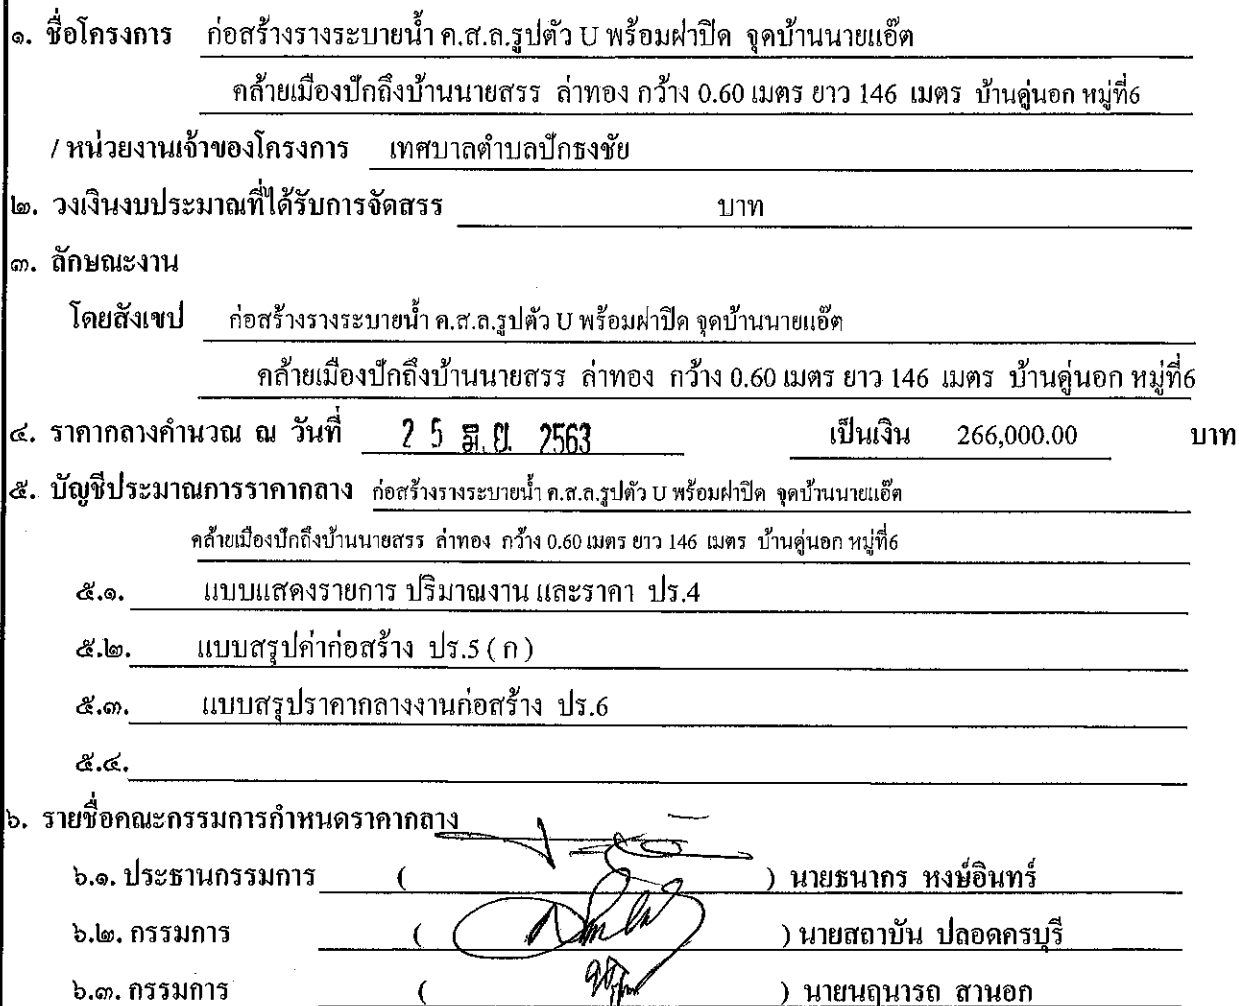 ๑. ชื่อโครงการ ก่อสร้างรางระบายน้ำ ค.ส.ล.รูปตัว U พร้อมฝาปิด จุดบ้านนายแอ๊ต
คล้ายเมืองปักถึงบ้านนายสรร ล่าทอง กว้าง 0.60 เมตร ยาว 146 เมตร บ้านดู่นอก หมู่ที่6
/ หน่วยงานเจ้าของโครงการ เทศบาลตำบลปักธงชัย
๒. วงเงินงบประมาณที่ได้รับการจัดสรร บาท
๓. ลักษณะงาน
โดยสังเขป ก่อสร้างรางระบายน้ำ ค.ส.ล.รูปตัว U พร้อมฝาปิด จุดบ้านนายแอ๊ต
คล้ายเมืองปักถึงบ้านนายสรร ล่าทอง กว้าง 0.60 เมตร ยาว 146 เมตร บ้านดู่นอก หมู่ที่6
๔. ราคากลางคำนวณ ณ วันที่ 25 มิ.ย. 2563 เป็นเงิน 266,000.00 บาท
๕. บัญชีประมาณการราคากลาง ก่อสร้างรางระบายน้ำ ค.ส.ล.รูปตัว U พร้อมฝาปิด จุดบ้านนายแอ๊ต
คล้ายเมืองปักถึงบ้านนายสรร ล่าทอง กว้าง 0.60 เมตร ยาว 146 เมตร บ้านดู่นอก หมู่ที่6
๕.๑. แบบแสดงรายการ ปริมาณงาน และราคา ปร.4
๕.๒. แบบสรุปค่าก่อสร้าง ปร.5 ( ก )
๕.๓. แบบสรุปราคากลางงานก่อสร้าง ปร.6
๕.๔.
๖. รายชื่อคณะกรรมการกำหนดราคากลาง
๖.๑. ประธานกรรมการ ( ) นายธนากร หงษ์อินทร์
๖.๒. กรรมการ ( ) นายสถาบัน ปลอดครบุรี
๖.๓. กรรมการ ( ) นายนฤนารถ สานอก